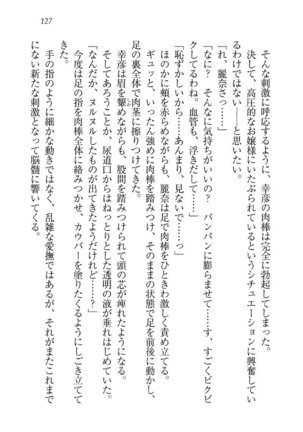 127
そんな刺激に呼応するように、幸彦の肉棒は完全に勃起してしまった。
決して、高圧的なお嬢様にいたぶられているというシチュエーションに興奮してい
るわけではない――と思いたい。
「れ、麗奈さん……」
「なに? そんなに気持ちがいいの? パンパンに膨らませて……す、すごくビクビ
クしてるわね。血管も、浮きだして……」
「恥ずかしいから……あんまり、見ないで……っ」
ほのかに頬を赤らめながらも、麗奈は足で肉棒をひときわ激しく責め立てる。
ギュッと、いったん強めに肉棒を踏みつけ、そのままの状態で足を前後に動かし、
足の裏全体で肉茎に擦りつけてきた。
幸彦は眉を顰めながらも、股間を踏みつけられて頭の芯が痺れたようになる。
そしてあろうことか、尿道口からはねっとりとした透明の液が垂れはじめていた。
「なんだか、ヌルヌルしたものが出てきたようだけれど……?」
今度は足の指を肉棒全体に絡みつかせ、カウパーを塗りたくるようにしごき立てて
きた。
手の指のように細かな動きではなく、乱雑な愛撫ではあるが、それがまたこれまで
にない新たな刺激となって脳髄に響いてくる。